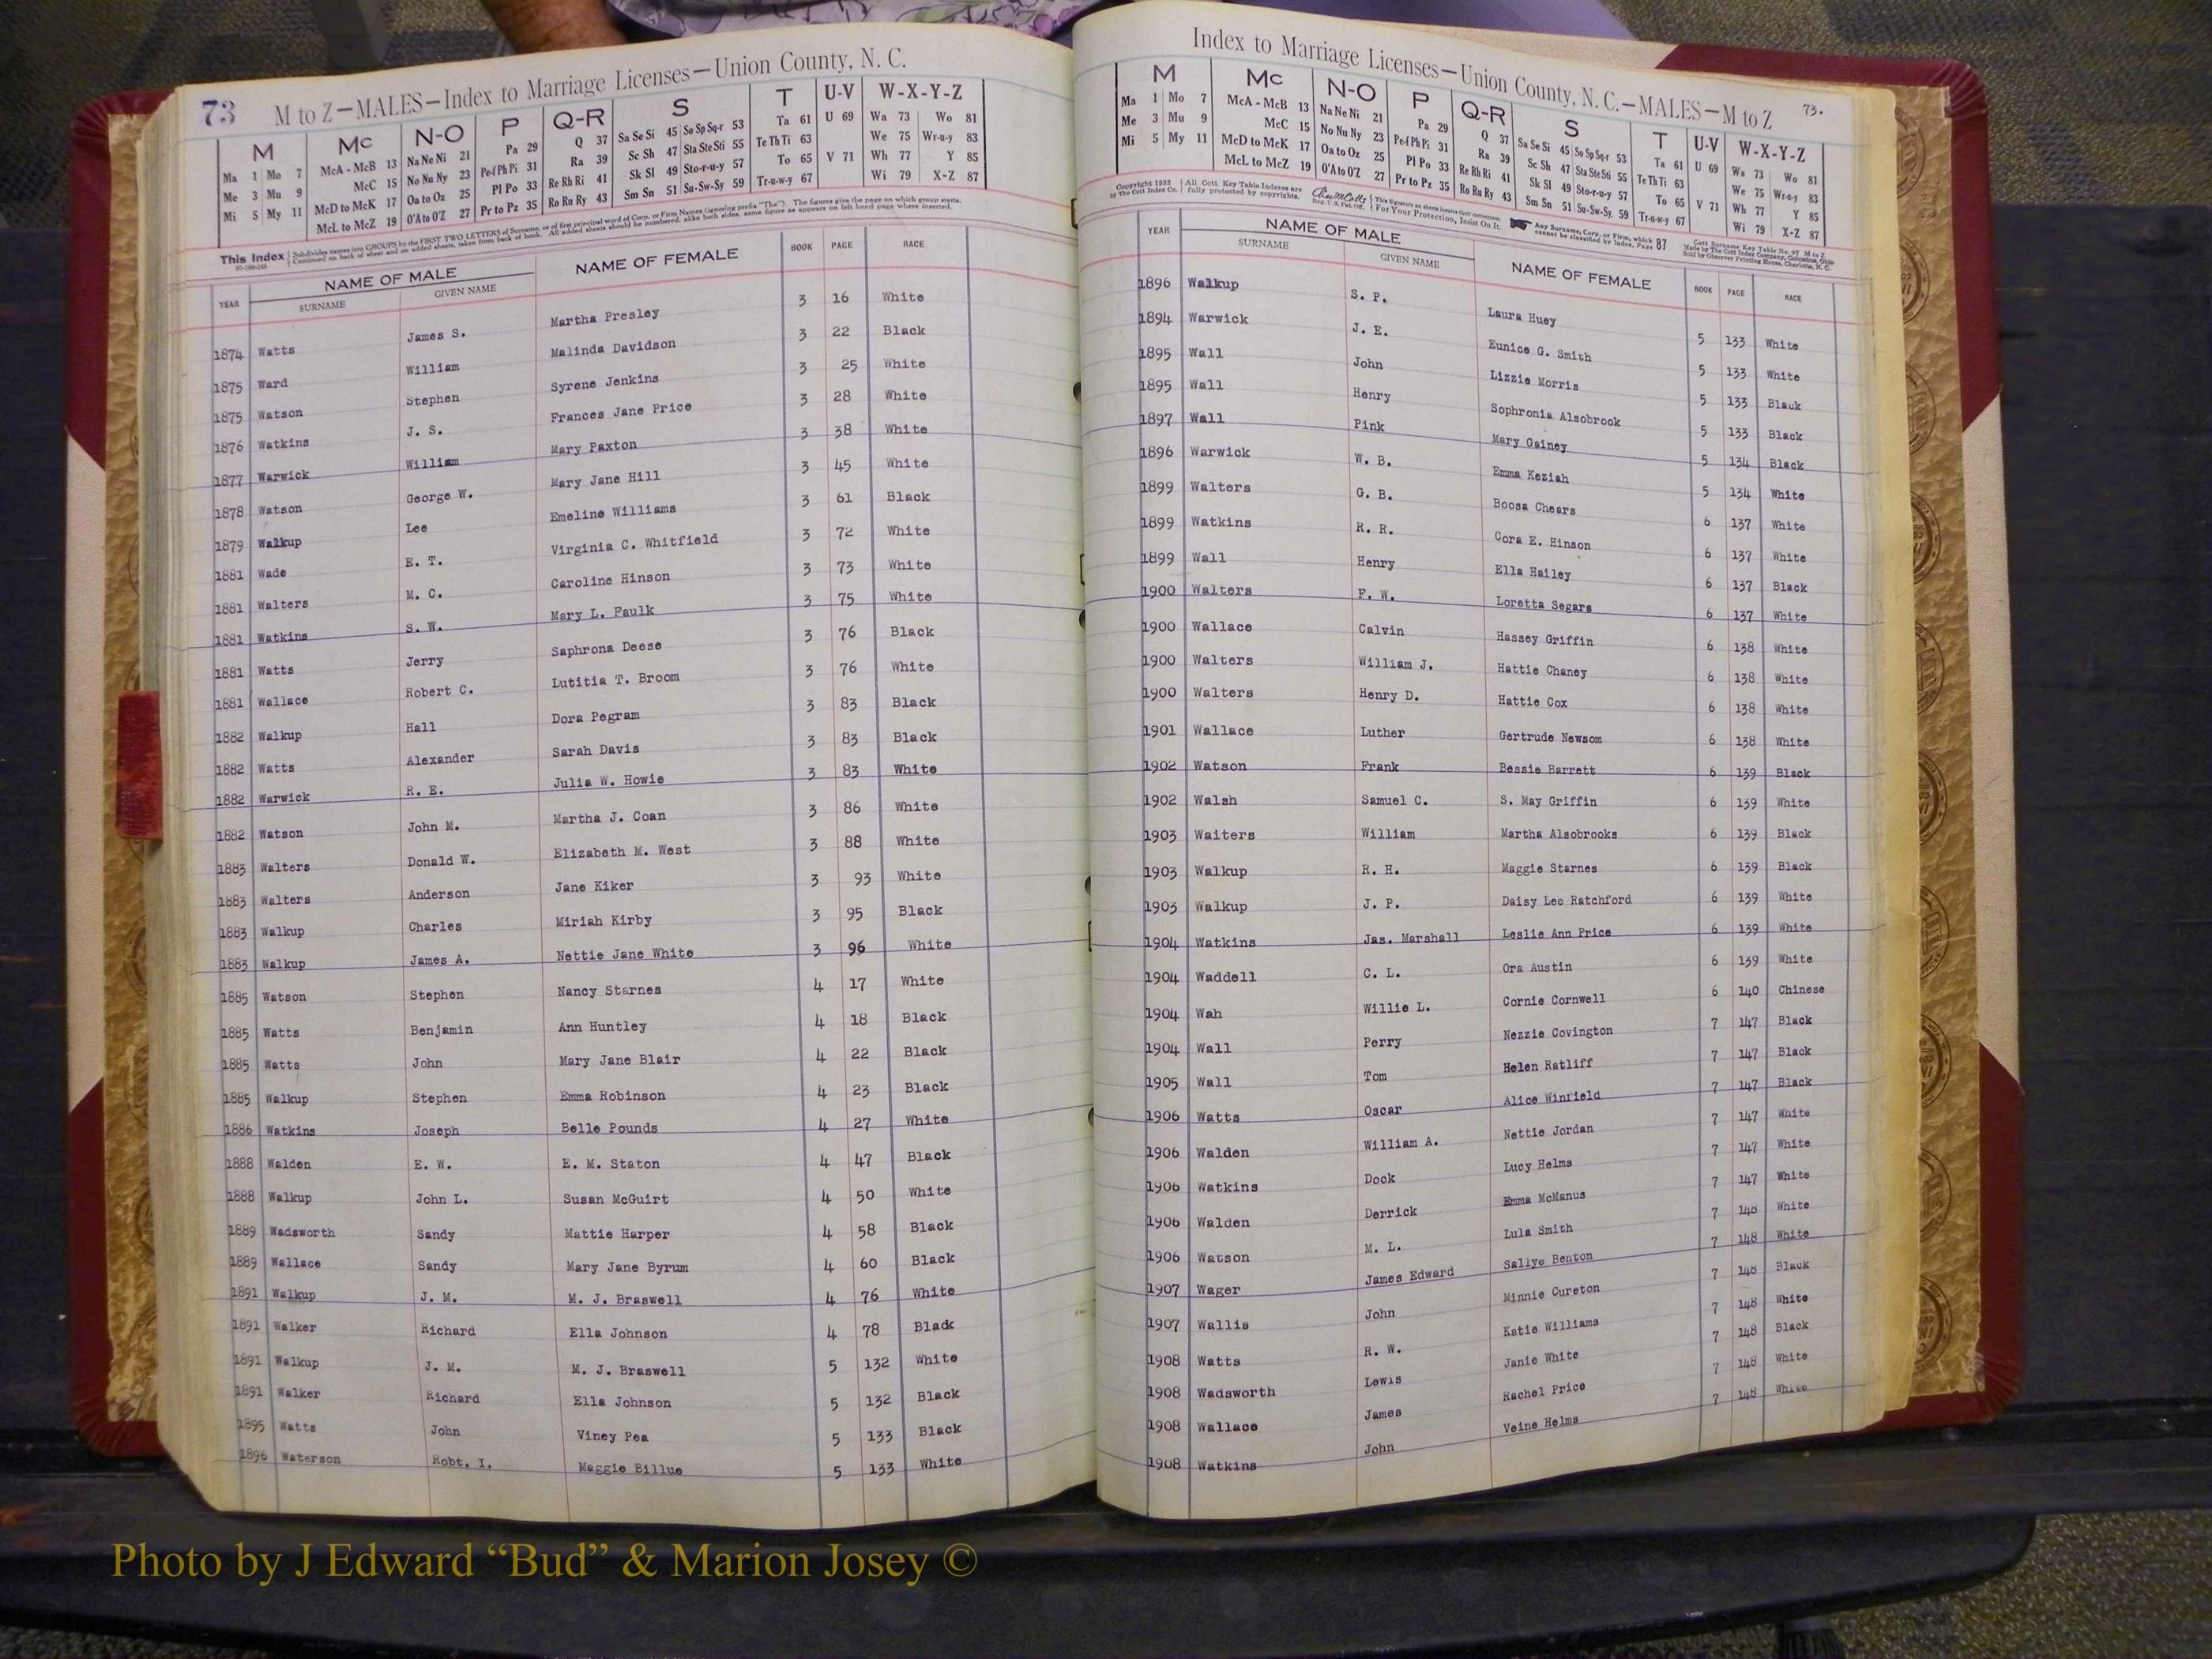 73 M to Z—MALES—Index to Marriage Licenses—Union County, N. C.
M Mc N-O P Q-R S T U-V W-X-Y-Z
Ma 1 Mo 7 McA - McB 13 Na Ne Ni 21 Pa 29 Q 37 Sa Se Si 45 So Sp Sq-r 53 Ta 61 U 69 Wa 73 Wo 81
Me 3 Mu 9 McC 15 No Nu Ny 23 Pe-f Ph Pi 31 Ra 39 Sc Sh 47 Sta Ste Sti 55 Te Th Ti 63 We 75 Wr-u-y 83
Mi 5 My 11 McD to McK 17 Oa to Oz 25 Pl Po 33 Re Rh Ri 41 Sk Sl 49 Sto-r-u-y 57 To 65 V 71 Wh 77 Y 85
McL to McZ 19 O'A to O'Z 27 Pr to Pz 35 Ro Ru Ry 43 Sm Sn 51 Su-Sw-Sy 59 Tr-u-w-y 67 Wi 79 X-Z 87
This Index Subdivides names into GROUPS by the FIRST TWO LETTERS of Surname, or of first principal word of Corp. or Firm Names (ignoring prefix "The"). The figures give the page on which group starts.
Continued on back of sheet and on added sheets, taken from back of book. All added sheets should be numbered, alike both sides, same figure as appears on left hand page where inserted.
YEAR NAME OF MALE NAME OF FEMALE BOOK PAGE RACE
SURNAME GIVEN NAME
1874 Watts James S. Martha Presley 3 16 White
1875 Ward William Malinda Davidson 3 22 Black
1875 Watson Stephen Syrene Jenkins 3 25 White
1876 Watkins J. S. Frances Jane Price 3 28 White
1877 Warwick William Mary Paxton 3 38 White
1878 Watson George W. Mary Jane Hill 3 45 White
1879 Walkup Lee Emeline Williams 3 61 Black
1881 Wade E. T. Virginia C. Whitfield 3 72 White
1881 Walters M. C. Caroline Hinson 3 73 White
1881 Watkins S. W. Mary L. Faulk 3 75 White
1881 Watts Jerry Saphrona Deese 3 76 Black
1881 Wallace Robert C. Lutitia T. Broom 3 76 White
1882 Walkup Hall Dora Pegram 3 83 Black
1882 Watts Alexander Sarah Davis 3 83 Black
1882 Warwick R. E. Julia W. Howie 3 83 White
1882 Watson John M. Martha J. Coan 3 86 White
1883 Walters Donald W. Elizabeth M. West 3 88 White
1883 Walters Anderson Jane Kiker 3 93 White
1883 Walkup Charles Miriah Kirby 3 95 Black
1883 Walkup James A. Nettie Jane White 3 96 White
1885 Watson Stephen Nancy Starnes 4 17 White
1885 Watts Benjamin Ann Huntley 4 18 Black
1885 Watts John Mary Jane Blair 4 22 Black
1885 Walkup Stephen Emma Robinson 4 23 Black
1886 Watkins Joseph Belle Pounds 4 27 White
1888 Walden E. W. E. M. Staton 4 47 Black
1888 Walkup John L. Susan McGuirt 4 50 White
1889 Wadsworth Sandy Mattie Harper 4 58 Black
1889 Wallace Sandy Mary Jane Byrum 4 60 Black
1891 Walkup J. M. M. J. Braswell 4 76 White
1891 Walker Richard Ella Johnson 4 78 Black
1891 Walkup J. M. M. J. Braswell 5 132 White
1891 Walker Richard Ella Johnson 5 132 Black
1895 Watts John Viney Pea 5 133 Black
1896 Waterson Robt. I. Maggie Billue 5 133 White
Index to Marriage Licenses—Union County, N. C.—MALES—M to Z 73.
M Mc N-O P Q-R S T U-V W-X-Y-Z
Ma 1 Mo 7 McA - McB 13 Na Ne Ni 21 Pa 29 Q 37 Sa Se Si 45 So Sp Sq-r 53 Ta 61 U 69 Wa 73 Wo 81
Me 3 Mu 9 McC 15 No Nu Ny 23 Pe-f Ph Pi 31 Ra 39 Sc Sh 47 Sta Ste Sti 55 Te Th Ti 63 We 75 Wr-u-y 83
Mi 5 My 11 McD to McK 17 Oa to Oz 25 Pl Po 33 Re Rh Ri 41 Sk Sl 49 Sto-r-u-y 57 To 65 V 71 Wh 77 Y 85
McL to McZ 19 O'A to O'Z 27 Pr to Pz 35 Ro Ru Ry 43 Sm Sn 51 Su-Sw-Sy. 59 Tr-u-w-y 67 Wi 79 X-Z 87
Copyright 1932 by The Cott Index Co. All Cott Key Table Indexes are fully protected by copyrights. For Your Protection, Insist On It. Any Surname, Corp. or Firm, which cannot be classified by Index, Page 87
Cott Surname Key Table No. 97 M to Z Made by The Cott Index Company, Columbus, Ohio Sold by Observer Printing House, Charlotte, N. C.
YEAR NAME OF MALE NAME OF FEMALE BOOK PAGE RACE
SURNAME GIVEN NAME
1896 Walkup S. P. Laura Huey 5 133 White
1894 Warwick J. E. Eunice G. Smith 5 133 White
1895 Wall John Lizzie Morris 5 133 Black
1895 Wall Henry Sophronia Alsobrook 5 133 Black
1897 Wall Pink Mary Gainey 5 134 Black
1896 Warwick W. B. Emma Keziah 5 134 White
1899 Walters G. B. Boosa Chears 6 137 White
1899 Watkins R. R. Cora E. Hinson 6 137 White
1899 Wall Henry Ella Hailey 6 137 Black
1900 Walters F. W. Loretta Segars 6 137 White
1900 Wallace Calvin Hassey Griffin 6 138 White
1900 Walters William J. Hattie Chaney 6 138 White
1900 Walters Henry D. Hattie Cox 6 138 White
1901 Wallace Luther Gertrude Newsom 6 138 White
1902 Watson Frank Bessie Barrett 6 139 Black
1902 Walsh Samuel C. S. May Griffin 6 139 White
1903 Walters William Martha Alsobrooks 6 139 Black
1903 Walkup R. H. Maggie Starnes 6 139 Black
1903 Walkup J. P. Daisy Lee Ratchford 6 139 White
1904 Watkins Jas. Marshall Leslie Ann Price 6 139 White
1904 Waddell C. L. Ora Austin 6 139 White
1904 Wah Willie L. Cornie Cornwell 6 140 Chinese
1904 Wall Perry Nezzie Covington 7 147 Black
1905 Wall Tom Helen Ratliff 7 147 Black
1906 Watts Oscar Alice Winfield 7 147 Black
1906 Walden William A. Nettie Jordan 7 147 White
1906 Watkins Dock Lucy Helms 7 147 White
1906 Walden Derrick Emma McManus 7 147 White
1906 Watson M. L. Lula Smith 7 148 White
1907 Wager James Edward Sallye Benton 7 148 White
1907 Wallis John Minnie Cureton 7 148 Black
1908 Watts R. W. Katie Williams 7 148 White
1908 Wadsworth Lewis Janie White 7 148 Black
1908 Wallace James Rachel Price 7 148 White
1908 Watkins John Veine Helms 7 148 White
Photo by J Edward “Bud” & Marion Josey ©